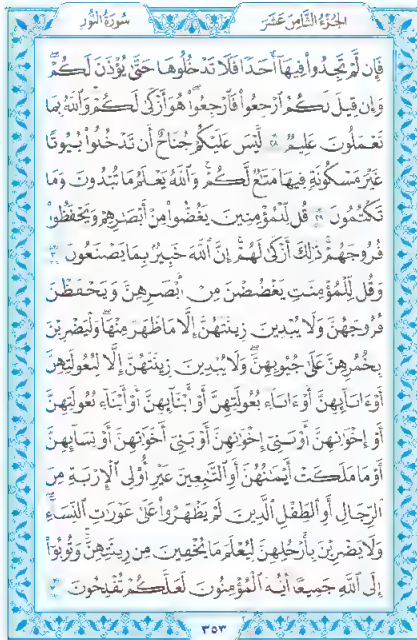 الجزء الثامن عشر
سورة النور
فَإِن لَّمْ تَجِدُوا۟ فِيهَآ أَحَدًا فَلَا تَدْخُلُوهَا حَتَّىٰ يُؤْذَنَ لَكُمْ ۖ
وَإِن قِيلَ لَكُمُ ٱرْجِعُوا۟ فَٱرْجِعُوا۟ ۖ هُوَ أَزْكَىٰ لَكُمْ ۚ وَٱللَّهُ بِمَا
تَعْمَلُونَ عَلِيمٌ ٢٨ لَّيْسَ عَلَيْكُمْ جُنَاحٌ أَن تَدْخُلُوا۟ بُيُوتًا
غَيْرَ مَسْكُونَةٍ فِيهَا مَتَٰعٌ لَّكُمْ ۚ وَٱللَّهُ يَعْلَمُ مَا تُبْدُونَ وَمَا
تَكْتُمُونَ ٢٩ قُل لِّلْمُؤْمِنِينَ يَغُضُّوا۟ مِنْ أَبْصَٰرِهِمْ وَيَحْفَظُوا۟
فُرُوجَهُمْ ۚ ذَٰلِكَ أَزْكَىٰ لَهُمْ ۗ إِنَّ ٱللَّهَ خَبِيرٌۢ بِمَا يَصْنَعُونَ ٣٠
وَقُل لِّلْمُؤْمِنَٰتِ يَغْضُضْنَ مِنْ أَبْصَٰرِهِنَّ وَيَحْفَظْنَ
فُرُوجَهُنَّ وَلَا يُبْدِينَ زِينَتَهُنَّ إِلَّا مَا ظَهَرَ مِنْهَا ۖ وَلْيَضْرِبْنَ
بِخُمُرِهِنَّ عَلَىٰ جُيُوبِهِنَّ ۖ وَلَا يُبْدِينَ زِينَتَهُنَّ إِلَّا لِبُعُولَتِهِنَّ
أَوْ ءَابَآئِهِنَّ أَوْ ءَابَآءِ بُعُولَتِهِنَّ أَوْ أَبْنَآئِهِنَّ أَوْ أَبْنَآءِ بُعُولَتِهِنَّ
أَوْ إِخْوَٰنِهِنَّ أَوْ بَنِىٓ إِخْوَٰنِهِنَّ أَوْ بَنِىٓ أَخَوَٰتِهِنَّ أَوْ نِسَآئِهِنَّ
أَوْ مَا مَلَكَتْ أَيْمَٰنُهُنَّ أَوِ ٱلتَّٰبِعِينَ غَيْرِ أُو۟لِى ٱلْإِرْبَةِ مِنَ
ٱلرِّجَالِ أَوِ ٱلطِّفْلِ ٱلَّذِينَ لَمْ يَظْهَرُوا۟ عَلَىٰ عَوْرَٰتِ ٱلنِّسَآءِ ۖ
وَلَا يَضْرِبْنَ بِأَرْجُلِهِنَّ لِيُعْلَمَ مَا يُخْفِينَ مِن زِينَتِهِنَّ ۚ وَتُوبُوٓا۟
إِلَى ٱللَّهِ جَمِيعًا أَيُّهَ ٱلْمُؤْمِنُونَ لَعَلَّكُمْ تُفْلِحُونَ ٣١
٣٥٣